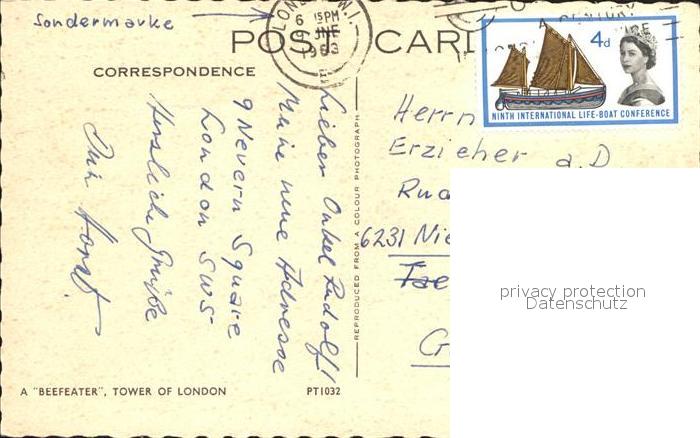 Sondermarke
LONDON W.1.
6 15PM
JNE
1963
A CENTURY
POST CARD
4d
NINTH INTERNATIONAL LIFE-BOAT CONFERENCE
CORRESPONDENCE
Lieber Onkel Rudolf!
Meine neue Adresse
9 Nevern Square
London SW5
Herzliche Grüße
Dein Horst.
REPRODUCED FROM A COLOUR PHOTOGRAPH
Herrn
Erzieher a.D
6231 Nie
privacy protection
Datenschutz
A "BEEFEATER", TOWER OF LONDON
PT1032